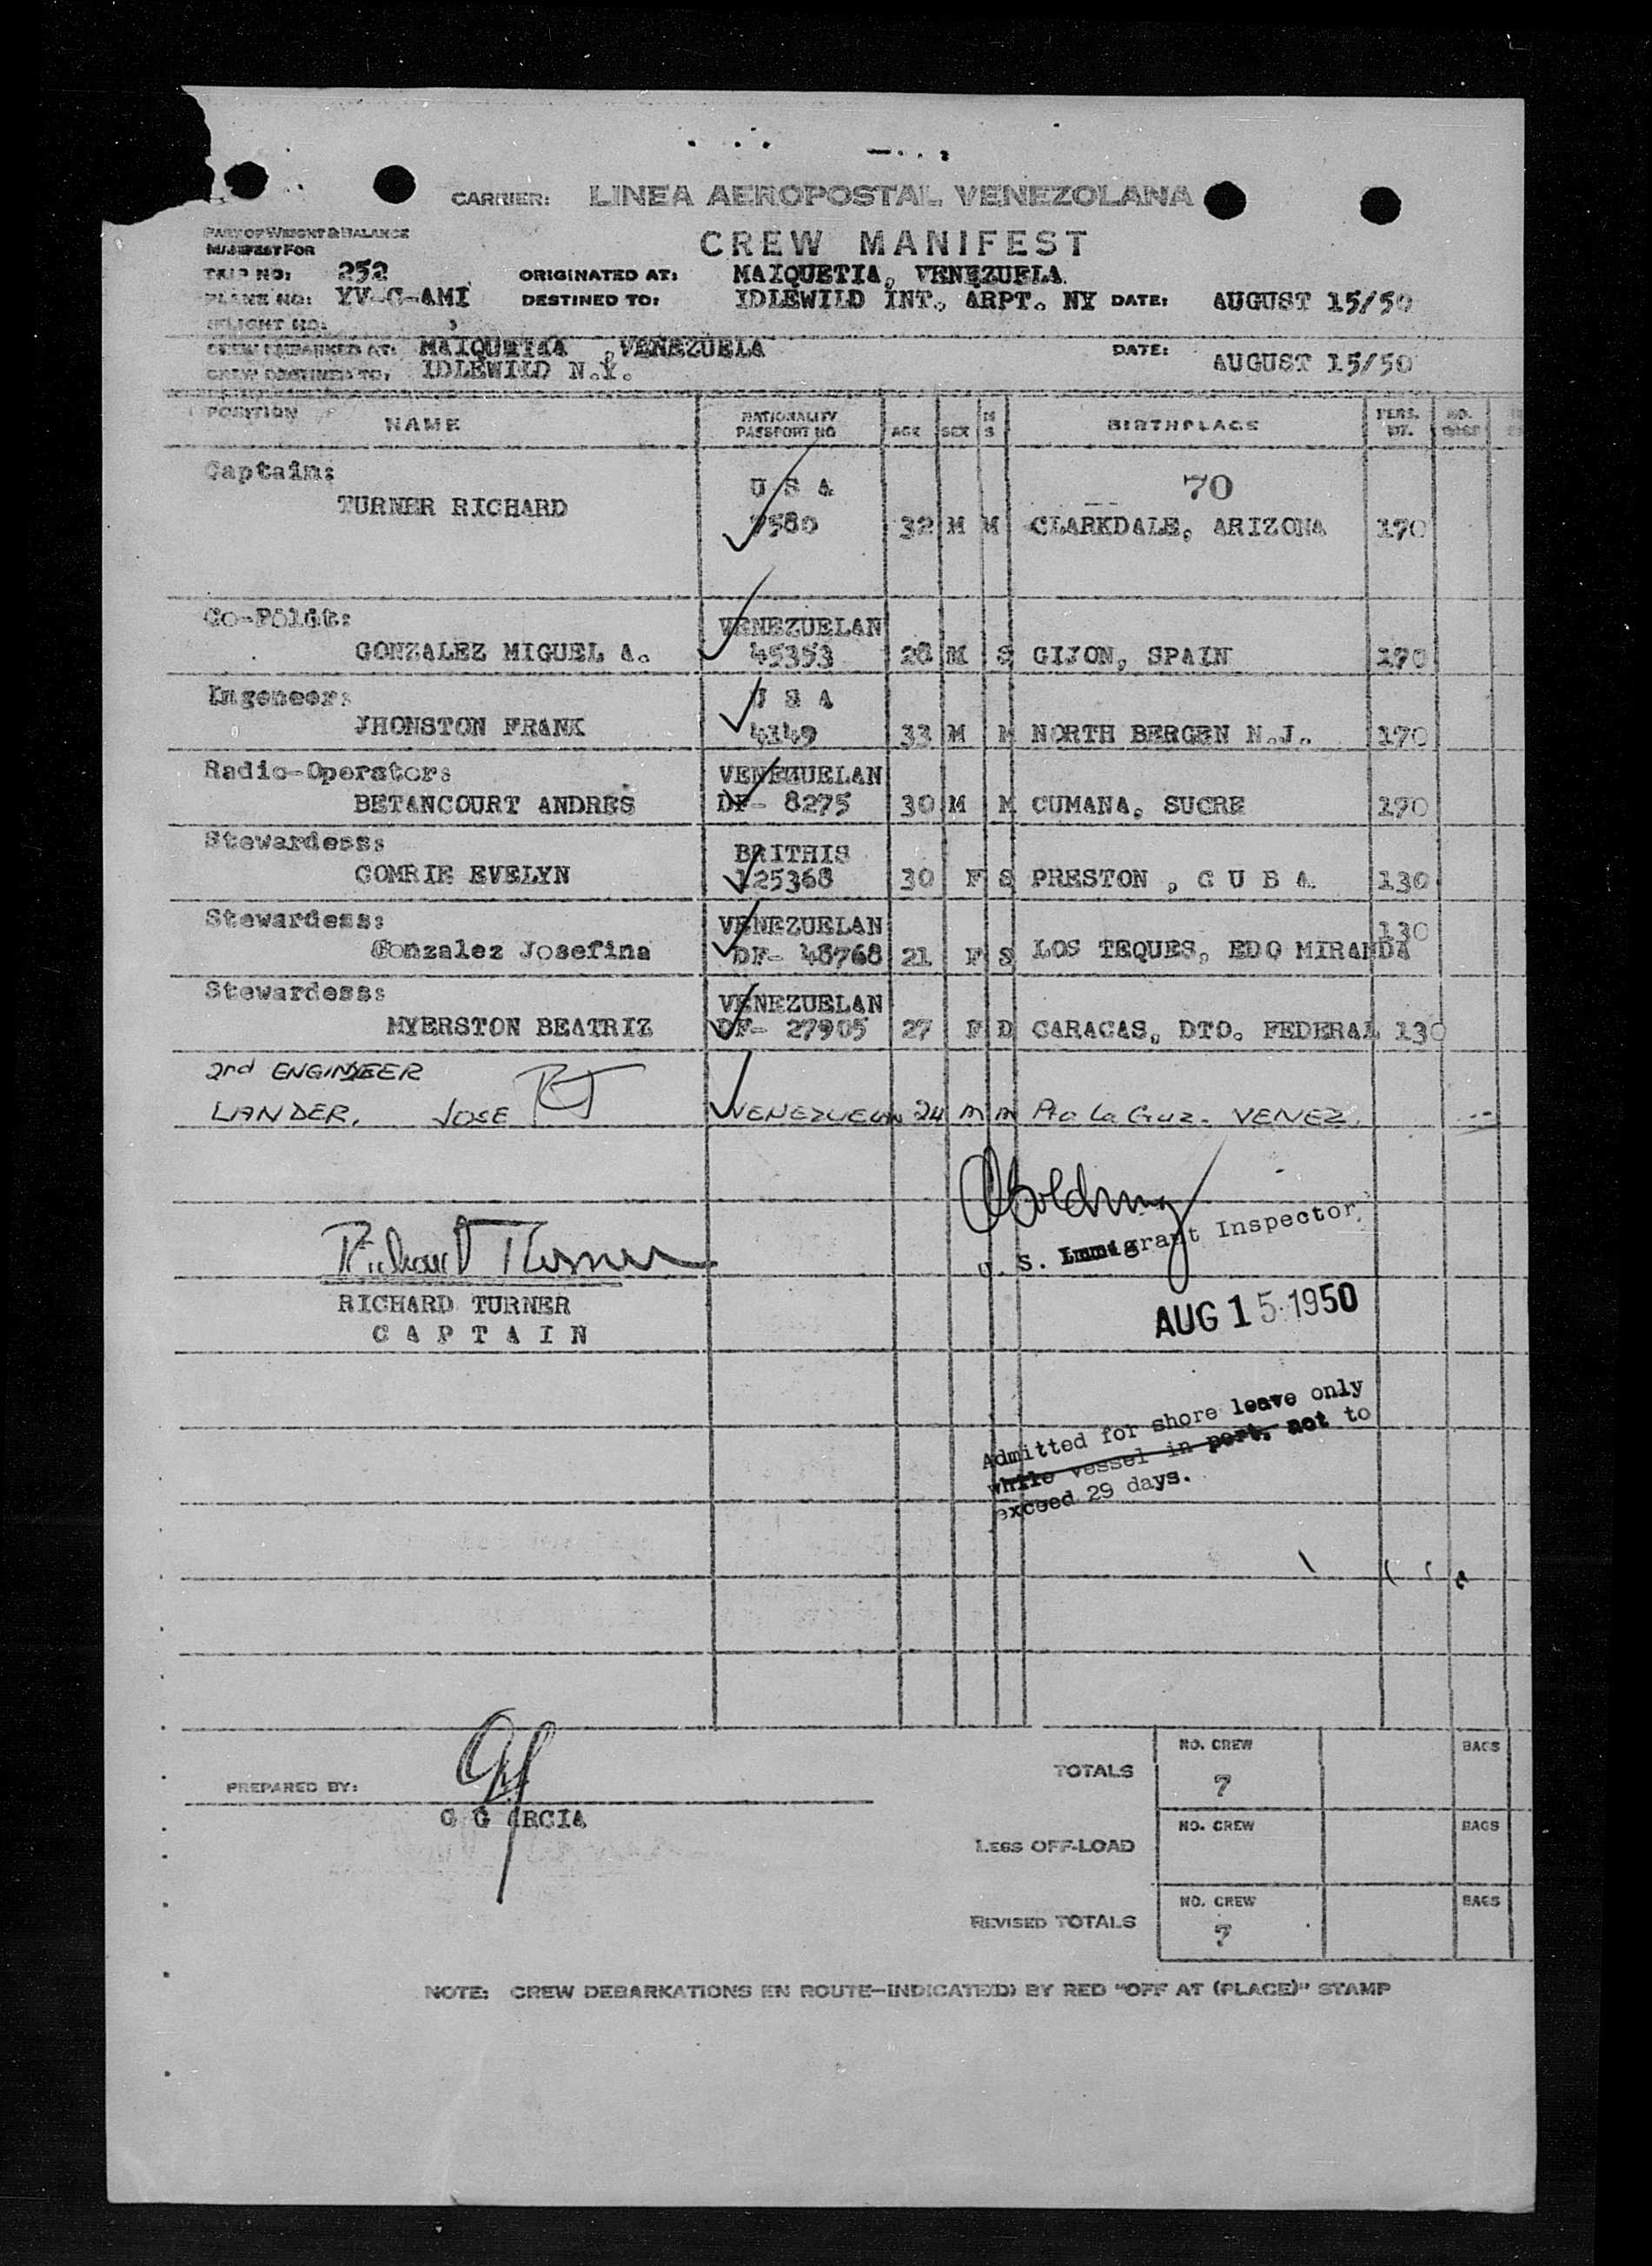 CARRIER: LINEA AEROPOSTAL VENEZOLANA
PART OF WEIGHT & BALANCE
MANIFEST FOR
CREW MANIFEST
TRIP NO: 252 ORIGINATED AT: MAIQUETIA, VENEZUELA
PLANE NO: YV-C-AMI DESTINED TO: IDLEWILD INT. ARPT. NY DATE: AUGUST 15/50
FLIGHT NO:
CREW EMBARKED AT: MAIQUETIA ,VENEZUELA DATE:
CREW DESTINED TO: IDLEWILD N.Y. AUGUST 15/50
POSITION NAME NATIONALITY PASSPORT NO AGE SEX M S BIRTHPLACE PERS. WT. NO.
Captain: U S A 70
TURNER RICHARD 9580 32 M M CLARKDALE, ARIZONA 170
Co-Poldt: VENEZUELAN
GONZALEZ MIGUEL A. 45353 28 M S GIJON, SPAIN 170
Ingeneer: U S A
JHONSTON FRANK 4149 33 M M NORTH BERGEN N.J. 170
Radio-Operator: VENEZUELAN
BETANCOURT ANDRES DF- 8275 30 M M CUMANA, SUCRE 170
Stewardess: BRITHIS
COMRIE EVELYN 125368 30 F S PRESTON , C U B A 130
Stewardess: VENEZUELAN 130
Gonzalez Josefina DF- 48768 21 F S LOS TEQUES, EDO MIRANDA
Stewardess: VENEZUELAN
MYERSTON BEATRIZ DF- 27905 27 F D CARACAS, DTO. FEDERAL 130
2nd ENGINEER
LANDER, JOSE RT VENEZUELAN 24 M M Pto La Cruz. VENEZ.
U. S. Immigrant Inspector
Richard Turner
RICHARD TURNER
C A P T A I N
AUG 15 1950
Admitted for shore leave only
while vessel in port, not to
exceed 29 days.
TOTALS NO. CREW 7 BAGS
PREPARED BY:
G GARCIA
LESS OFF-LOAD NO. CREW BAGS
REVISED TOTALS NO. CREW 7 BAGS
NOTE: CREW DEBARKATIONS EN ROUTE—INDICATED) BY RED "OFF AT (PLACE)" STAMP